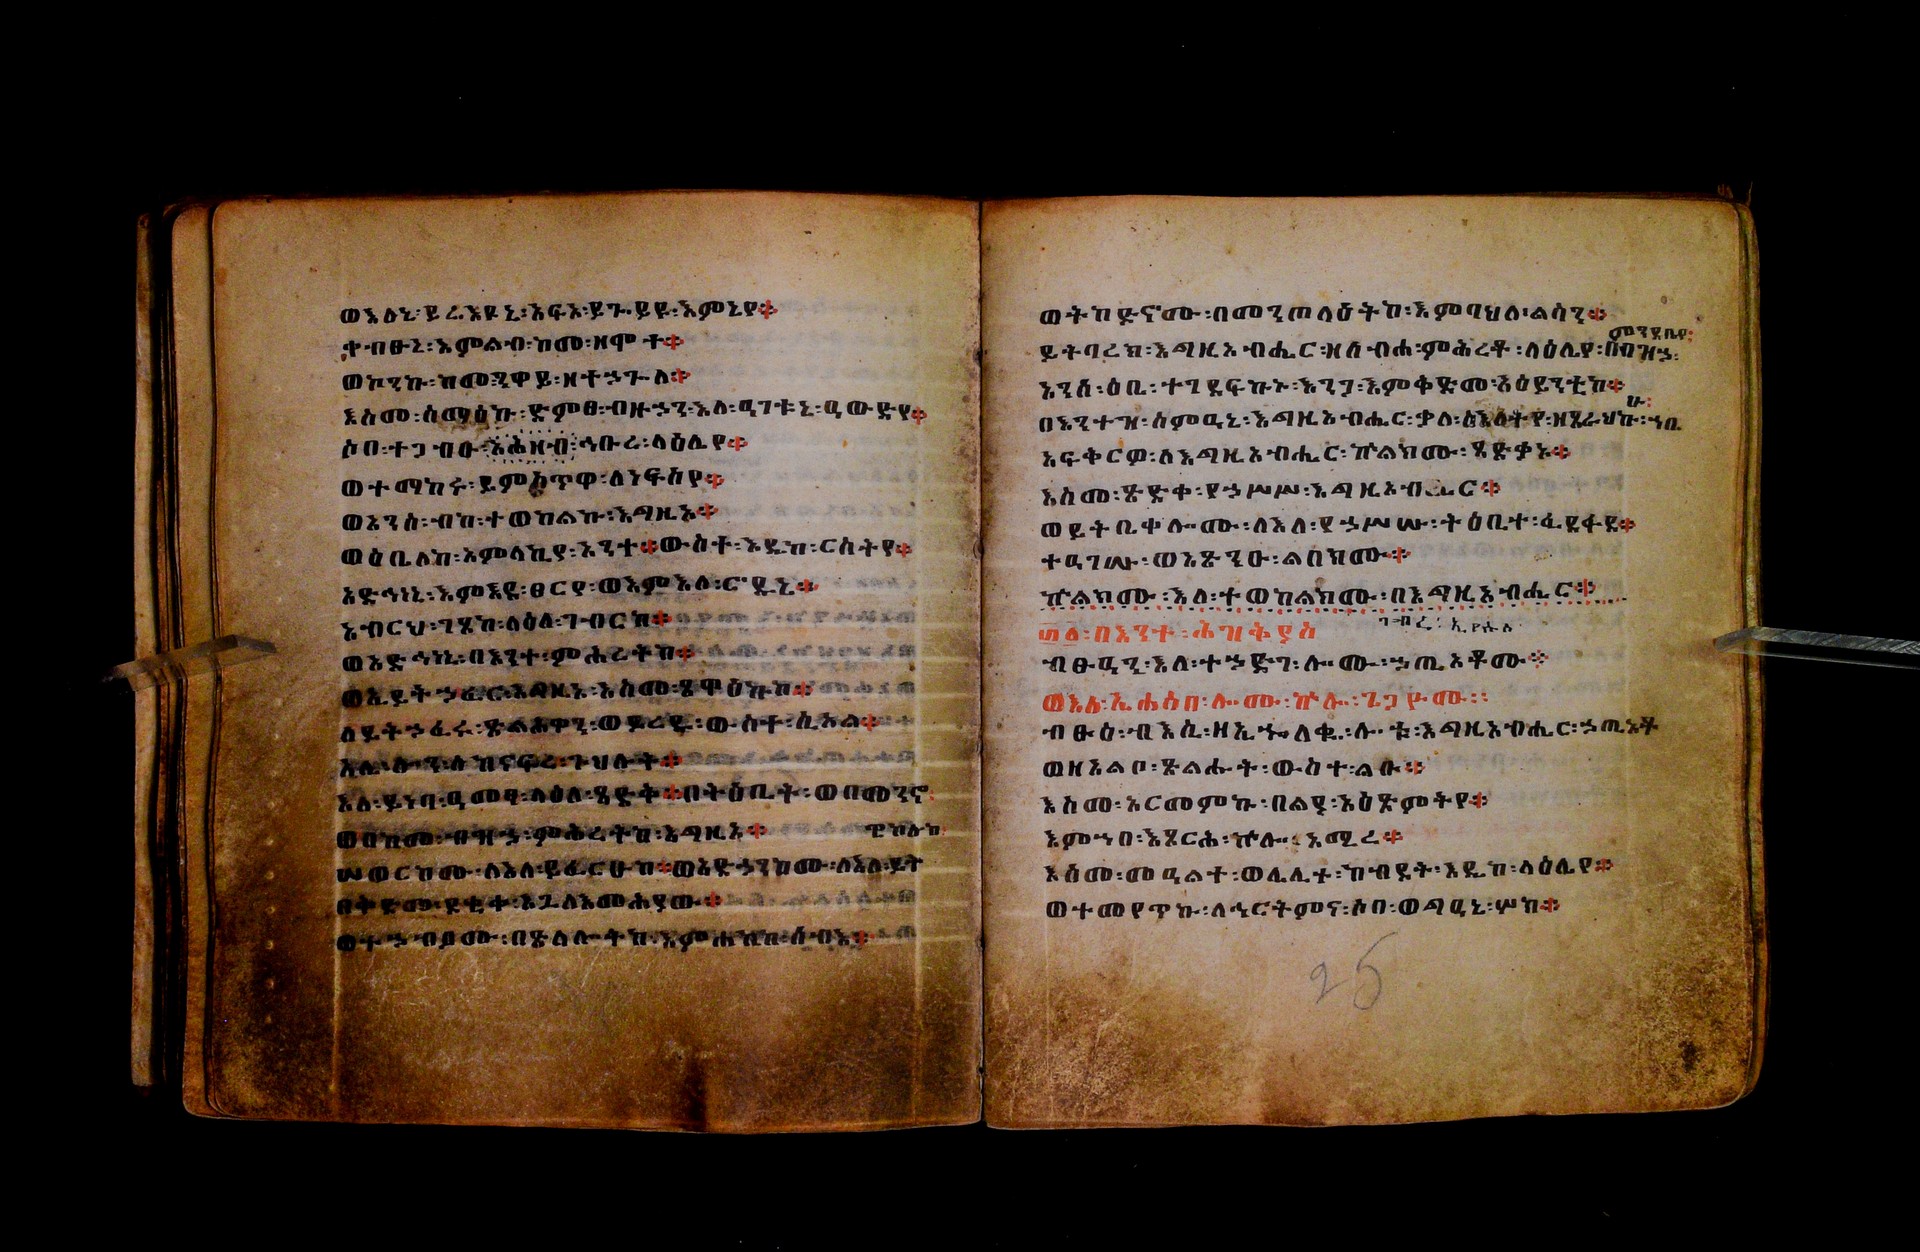 ወእለኒ፡ይሬእዩኒ፡አፍአ፡ይጉይዩ፡እምኔየ።
ተብፁኒ፡እምልብ፡ከመ፡ዘሞተ።
ወኮንኩ፡ከመ፡ንዋይ፡ዘተኀጕለ።
እስመ፡ሰማዕኩ፡ድምፀ፡ብዙኃን፡እለ፡ዔገቱኒ፡ዔውድየ።
ሶበ፡ተጋብኡ፡አሕዛብ፡ኅቡረ፡ላዕሌየ።
ወተማከሩ፡ይምስጥዋ፡ለነፍስየ።
ወአንሰ፡ብከ፡ተወከልኩ፡እግዚአ።
ወዕቤለከ፡አምላኪየ፡አንተ።ውስተ፡እዴከ፡ርስትየ።
አድኅነኒ፡እምእደ፡ፀርየ፡ወእምእለ፡ሮዱኒ።
አብርህ፡ገጸከ፡ላዕለ፡ገብርከ።
ወአድኅነኒ፡በእንተ፡ምሕረትከ።
ወኢይትኀፈር፡እግዚኦ፡እስመ፡ጸዋዕኩከ።
ለይትኀፈሩ፡ጽልሕዋን፡ወይረዱ፡ውስተ፡ሲኦል።
እለ፡ይነባ፡ዓመፃ፡ላዕለ፡ጻድቅ።በትዕቢት፡ወበመንኖ፡
ወበከመ፡ብዝኃ፡ምሕረትከ፡እግዚኦ።
ሠወርከሙ፡ለእለ፡ይፈርሁከ።ወአድኃንከሙ፡ለእለ፡ይት
በቅድመ፡ደቂቀ፡እጓለእመሕያው።
ወተኀብዖሙ፡በጽላሎትከ፡እምሐከከ፡ሰብእ።
ወትከድኖሙ፡በመንጦላዕትከ፡እምባህለ፡ልሳን።
ምንዳቤየ፡
ይትባረክ፡እግዚአብሔር፡ዘሰብሐ፡ምሕረቶ፡ላዕሌየ፡በብዝኃ፡
አንሰ፡ዕቤ፡ተገደፍኩኑ፡እንጋ፡እምቅድመ፡አዕይንቲከ።
በእንተዝ፡ሰምዓኒ፡እግዚአብሔር፡ቃለ፡ስእለትየ፡ዘጸራህኩ፡ኀቤ
አፍቅርዎ፡ለእግዚአብሔር፡ኵልክሙ፡ጻድቃኑ።
እስመ፡ጽድቀ፡የኃሥሥ፡እግዚአብሔር።
ወይትቤቀሎሙ፡ለእለ፡የኃሥሡ፡ትዕቢተ፡ፈድፋደ።
ተዓገሡ፡ወአጽንዑ፡ልበክሙ።
ኵልክሙ፡እለ፡ተወከልክሙ፡በእግዚአብሔር።
ዘለ፡በእንተ፡ሕዝቅያስ
ብፁዓን፡እለ፡ተኃድገ፡ሎሙ፡ኃጢአቶሙ።
ወእለ፡ኢሐሰበ፡ሎሙ፡ኵሎ፡ጌጋዮሙ።
ብፁዕ፡ብእሲ፡ዘኢኈለቈ፡ሎቱ፡እግዚአብሔር፡ኃጢአቶ
ወዘአልቦ፡ጽልሑት፡ውስተ፡ልቡ።
እስመ፡አርመምኩ፡በልየ፡አዕጽምትየ።
እምኀበ፡እጸርሕ፡ኵሎ፡አሚረ።
እስመ፡መዓልተ፡ወሌሊተ፡ከብደት፡እዴከ፡ላዕሌየ።
ወተመየጥኩ፡ለኅርትምና፡ሶበ፡ወግዓኒ፡ሦክ።
25